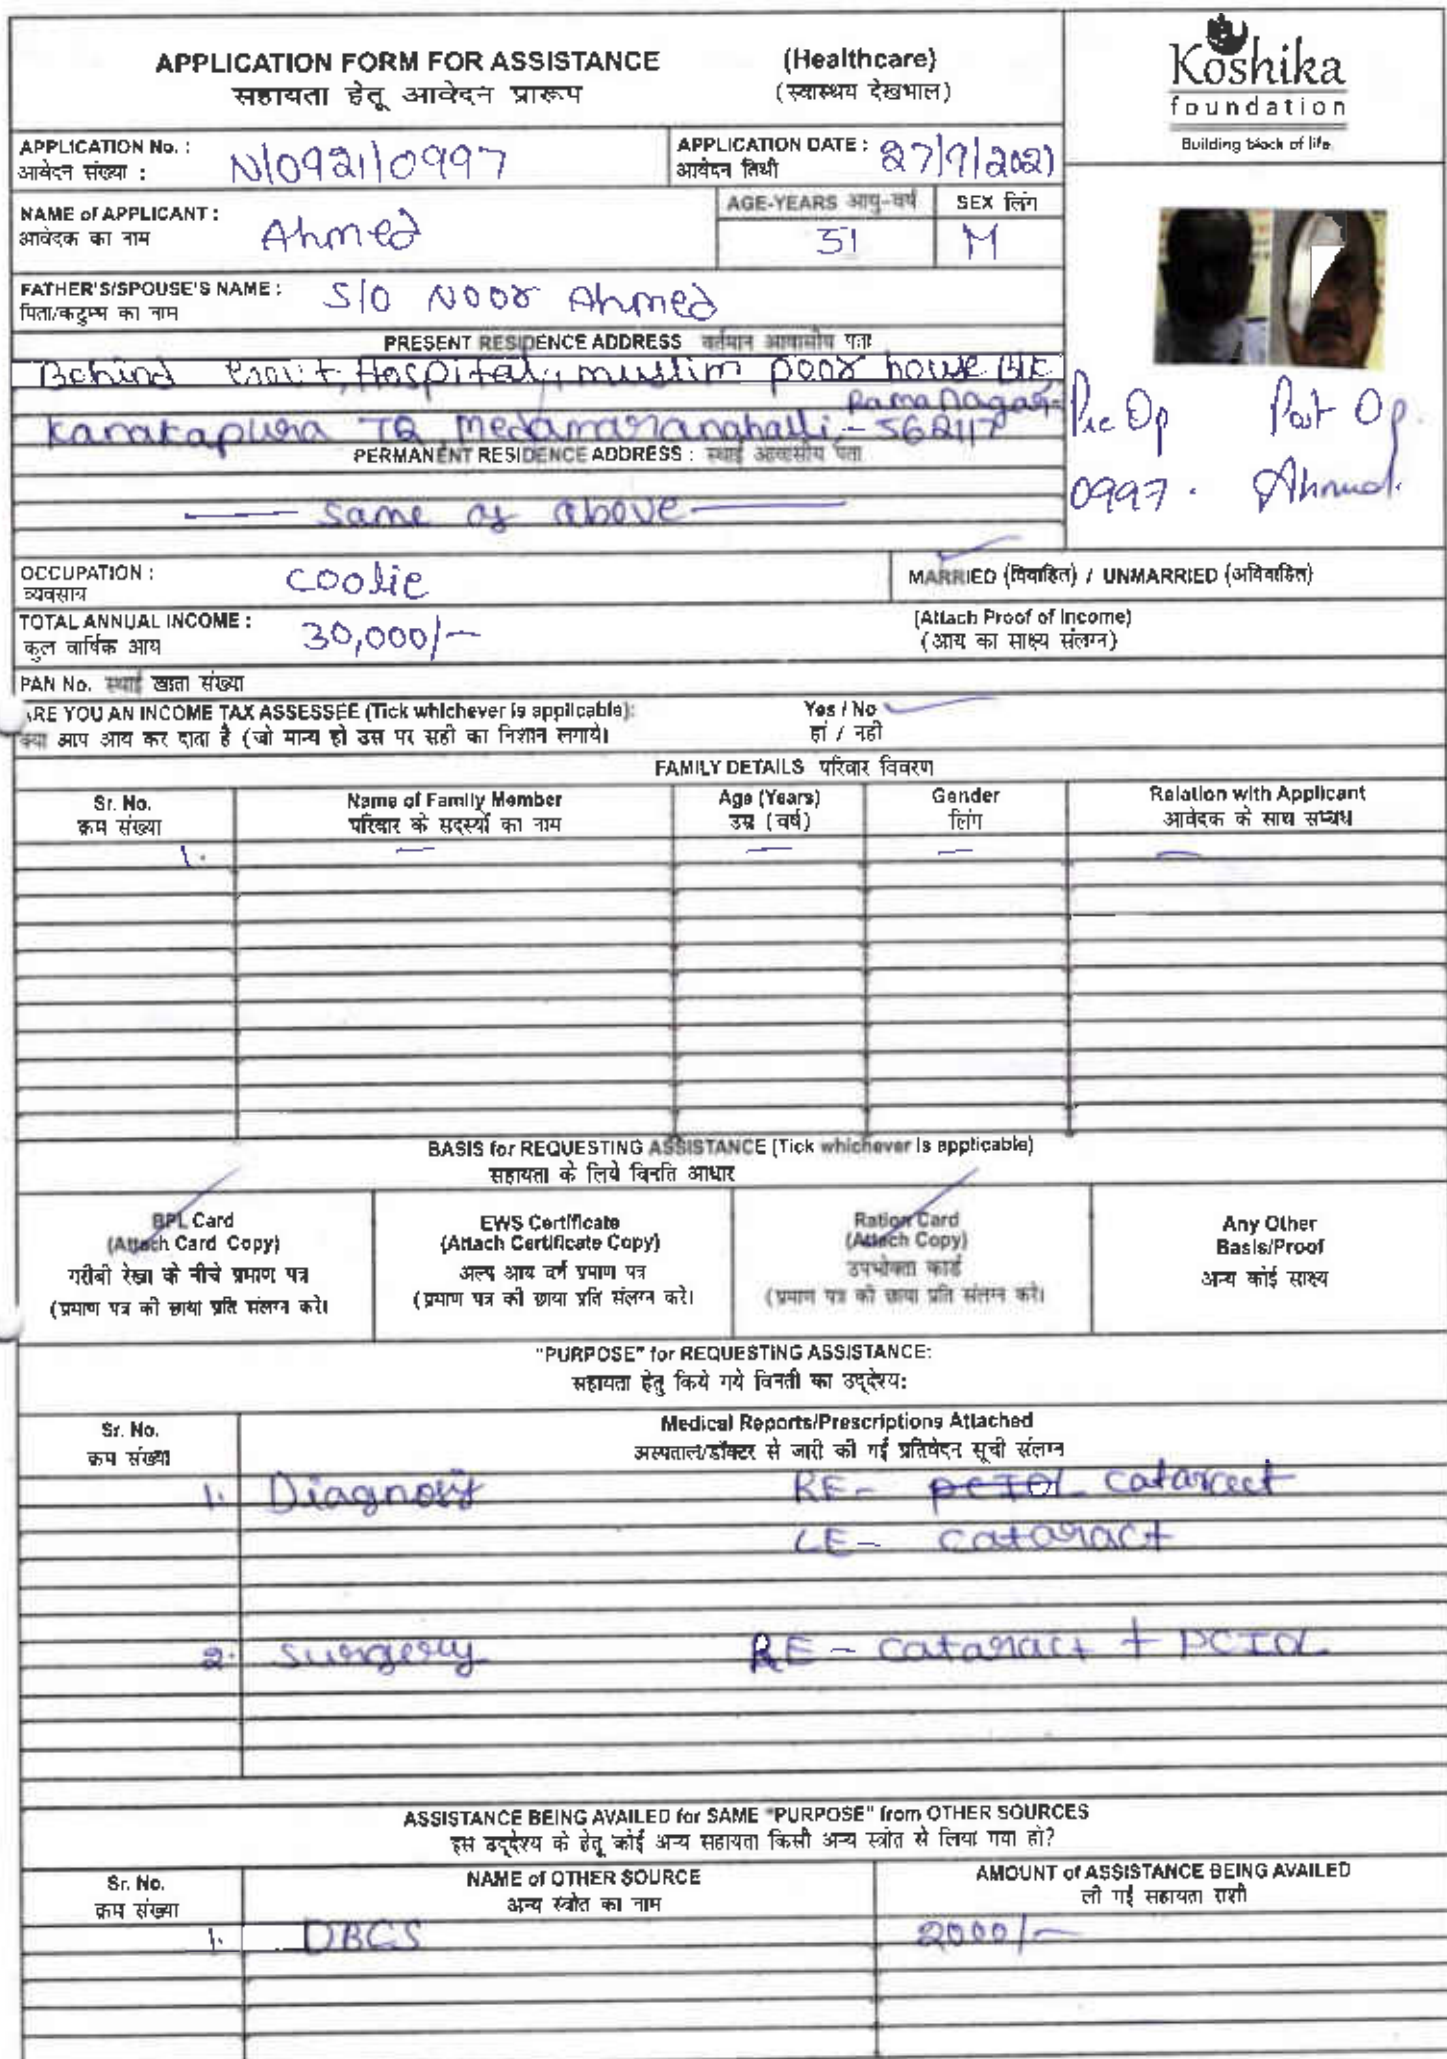 APPLICATION FORM FOR ASSISTANCE (Healthcare)
सहायता हेतू आवेदन प्रारूप (स्वास्थय देखभाल)
Koshika
foundation
Building block of life
APPLICATION No. : N/0921/0997
आवेदन संख्या :
APPLICATION DATE : 27/9/2021
आवेदन तिथी
NAME of APPLICANT : Ahmed
आवेदक का नाम
AGE-YEARS आयु-वर्ष SEX लिंग
51 M
FATHER'S/SPOUSE'S NAME : S/O Noor Ahmed
पिता/कटुम्ब का नाम
PRESENT RESIDENCE ADDRESS वर्तमान आवासीय पता
Behind Govt, Hospital, muslim poor house
Ramanagar
Kanakapura TQ, Medamaranahalli, - 562117
Pre Op Post Op.
0997. Ahmed.
PERMANENT RESIDENCE ADDRESS : स्थाई आवासीय पता
same as above
OCCUPATION : Coolie
व्यवसाय
MARRIED (विवाहित) / UNMARRIED (अविवाहित)
TOTAL ANNUAL INCOME : 30,000/-
कुल वार्षिक आय
(Attach Proof of Income)
(आय का साक्ष्य संलग्न)
PAN No. स्थाई खाता संख्या
ARE YOU AN INCOME TAX ASSESSEE (Tick whichever is applicable): Yes / No
क्या आप आय कर दाता है (जो मान्य हो उस पर सही का निशान लगाये। हां / नही
FAMILY DETAILS परिवार विवरण
Sr. No. Name of Family Member Age (Years) Gender Relation with Applicant
क्रम संख्या परिवार के सदस्यों का नाम उम्र (वर्ष) लिंग आवेदक के साथ सम्बंध
1. — — — —
BASIS for REQUESTING ASSISTANCE (Tick whichever is applicable)
सहायता के लिये विनति आधार
BPL Card
(Attach Card Copy)
गरीबी रेखा के नीचे प्रमाण पत्र
(प्रमाण पत्र की छाया प्रति संलग्न करे।
EWS Certificate
(Attach Certificate Copy)
अल्प आय वर्ग प्रमाण पत्र
(प्रमाण पत्र की छाया प्रति संलग्न करे।
Ration Card
(Attach Copy)
उपभोक्ता कार्ड
(प्रमाण पत्र की छाया प्रति संलग्न करे।
Any Other
Basis/Proof
अन्य कोई साक्ष्य
"PURPOSE" for REQUESTING ASSISTANCE:
सहायता हेतु किये गये विनती का उद्देश्य:
Sr. No. Medical Reports/Prescriptions Attached
क्रम संख्या अस्पताल/डॉक्टर से जारी की गई प्रतिवेदन सूची संलग्न
1. Diagnosis RE- PCIOL cataract
LE- cataract
2. Surgery RE - cataract + PCIOL
ASSISTANCE BEING AVAILED for SAME "PURPOSE" from OTHER SOURCES
इस उद्देश्य के हेतू कोई अन्य सहायता किसी अन्य स्त्रोत से लिया गया हो?
Sr. No. NAME of OTHER SOURCE AMOUNT of ASSISTANCE BEING AVAILED
क्रम संख्या अन्य स्त्रोत का नाम ली गई सहायता राशी
1. DBCS 2000/-